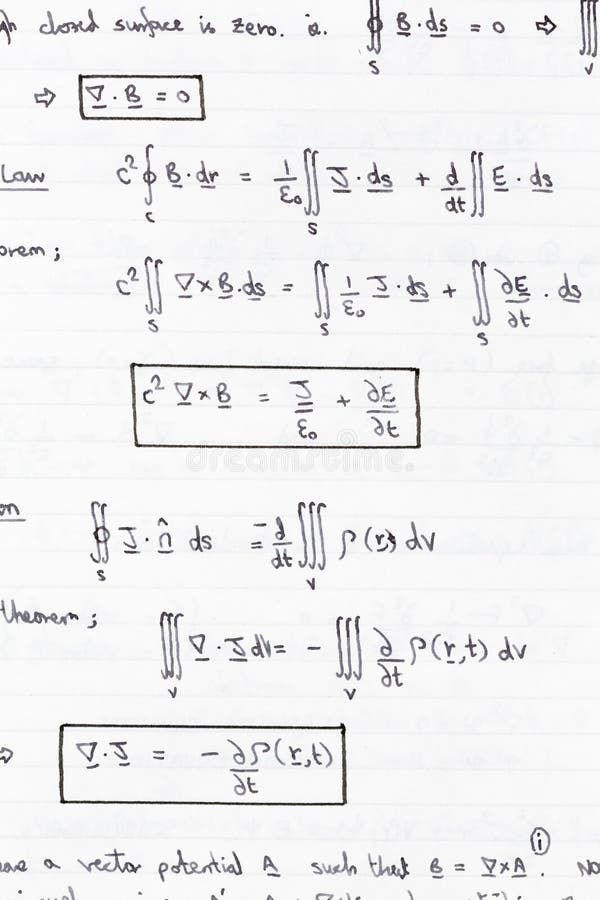 closed surface is zero. i.e. ∯_S B · ds = 0 ⇒ ∭_V
⇒ ∇ · B = 0
Law c² ∮_C B · dr = 1/ε₀ ∬_S J · ds + d/dt ∬ E · ds
orem ;
c² ∬_S ∇ × B · ds = ∬_S 1/ε₀ J · ds + ∬_S ∂E/∂t · ds
c² ∇ × B = J/ε₀ + ∂E/∂t
dreamstime.com
on ∯_S J · n̂ ds = - d/dt ∭_V ρ(r) dV
theorem ;
∭_V ∇ · J dV = - ∭_V ∂/∂t ρ(r,t) dV
⇒ ∇ · J = - ∂ρ(r,t)/∂t
a vector potential A such that B = ∇×A (i) .